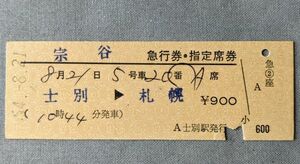 宗谷 急行券・指定席券
8月21日5号車20番A席
士別▶札幌 ¥900
(10時44分発車)
A士別駅発行
小
600
急②座
A
-8.21